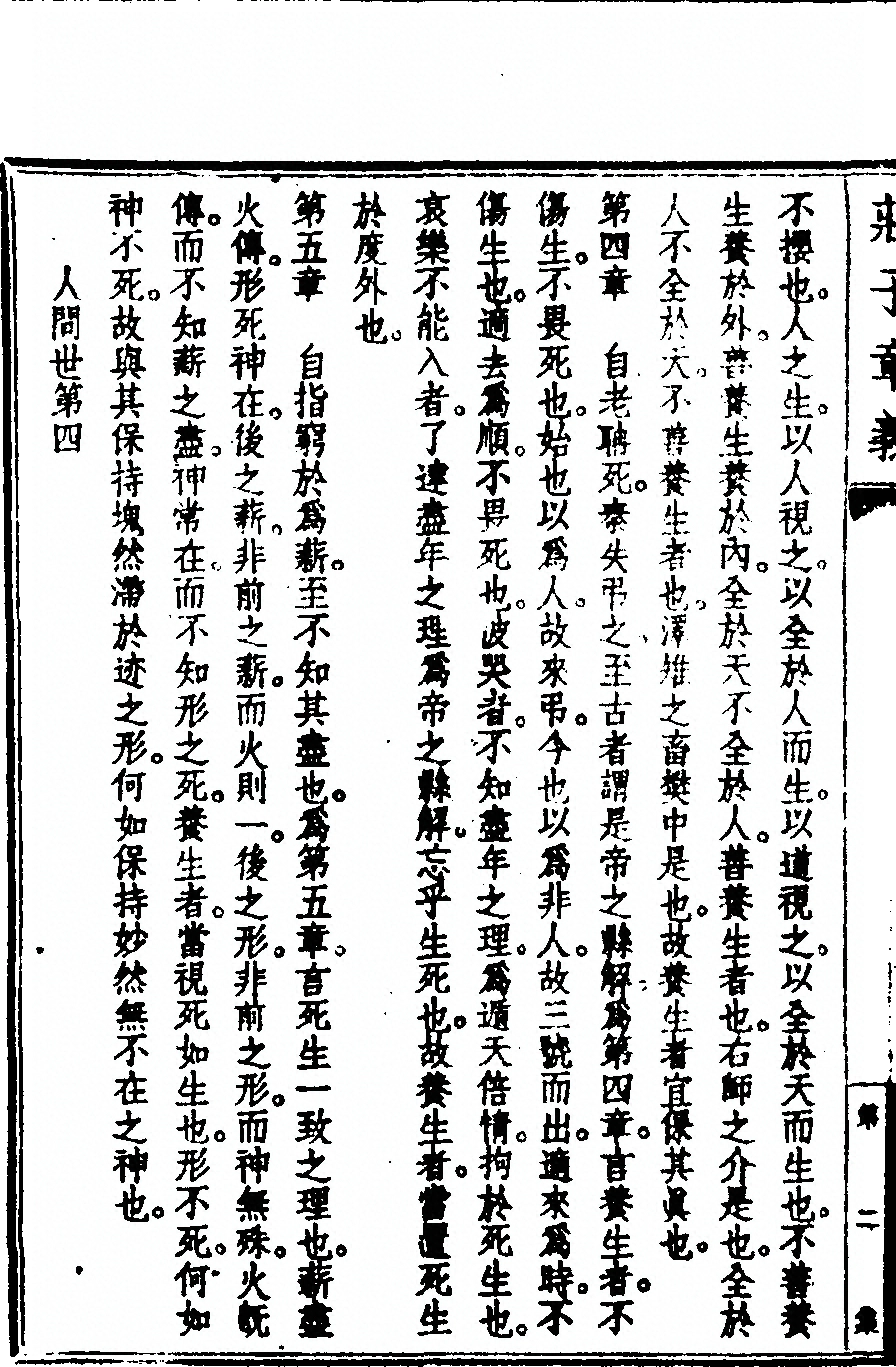 莊子章義
第二集
不攖也。人之生。以人視之。以全於人而生。以道視之。以全於天而生也。不善養
生養於外。善養生養於內。全於天不全於人。善養生者也。右師之介是也。全於
人不全於天。不善養生者也。澤雉之畜樊中是也。故養生者宜保其眞也。
第四章　自老聃死。秦失弔之至古者謂是帝之縣解。爲第四章。言養生者。不
傷生。不畏死也。始也以爲人。故來弔。今也以爲非人。故三號而出。適來爲時。不
傷生也。適去爲順。不畏死也。彼哭者。不知盡年之理。爲遁天倍情。拘於死生也。
哀樂不能入者。了達盡年之理爲帝之縣解。忘乎生死也。故養生者。當置死生
於度外也。
第五章　自指窮於爲薪。至不知其盡也。爲第五章。言死生一致之理也。薪盡
火傳。形死神在。後之薪。非前之薪。而火則一。後之形。非前之形。而神無殊。火旣
傳。而不知薪之盡。神常在。而不知形之死。養生者。當視死如生也。形不死。何如
神不死。故與其保持塊然滯於迹之形。何如保持妙然無不在之神也。
人間世第四